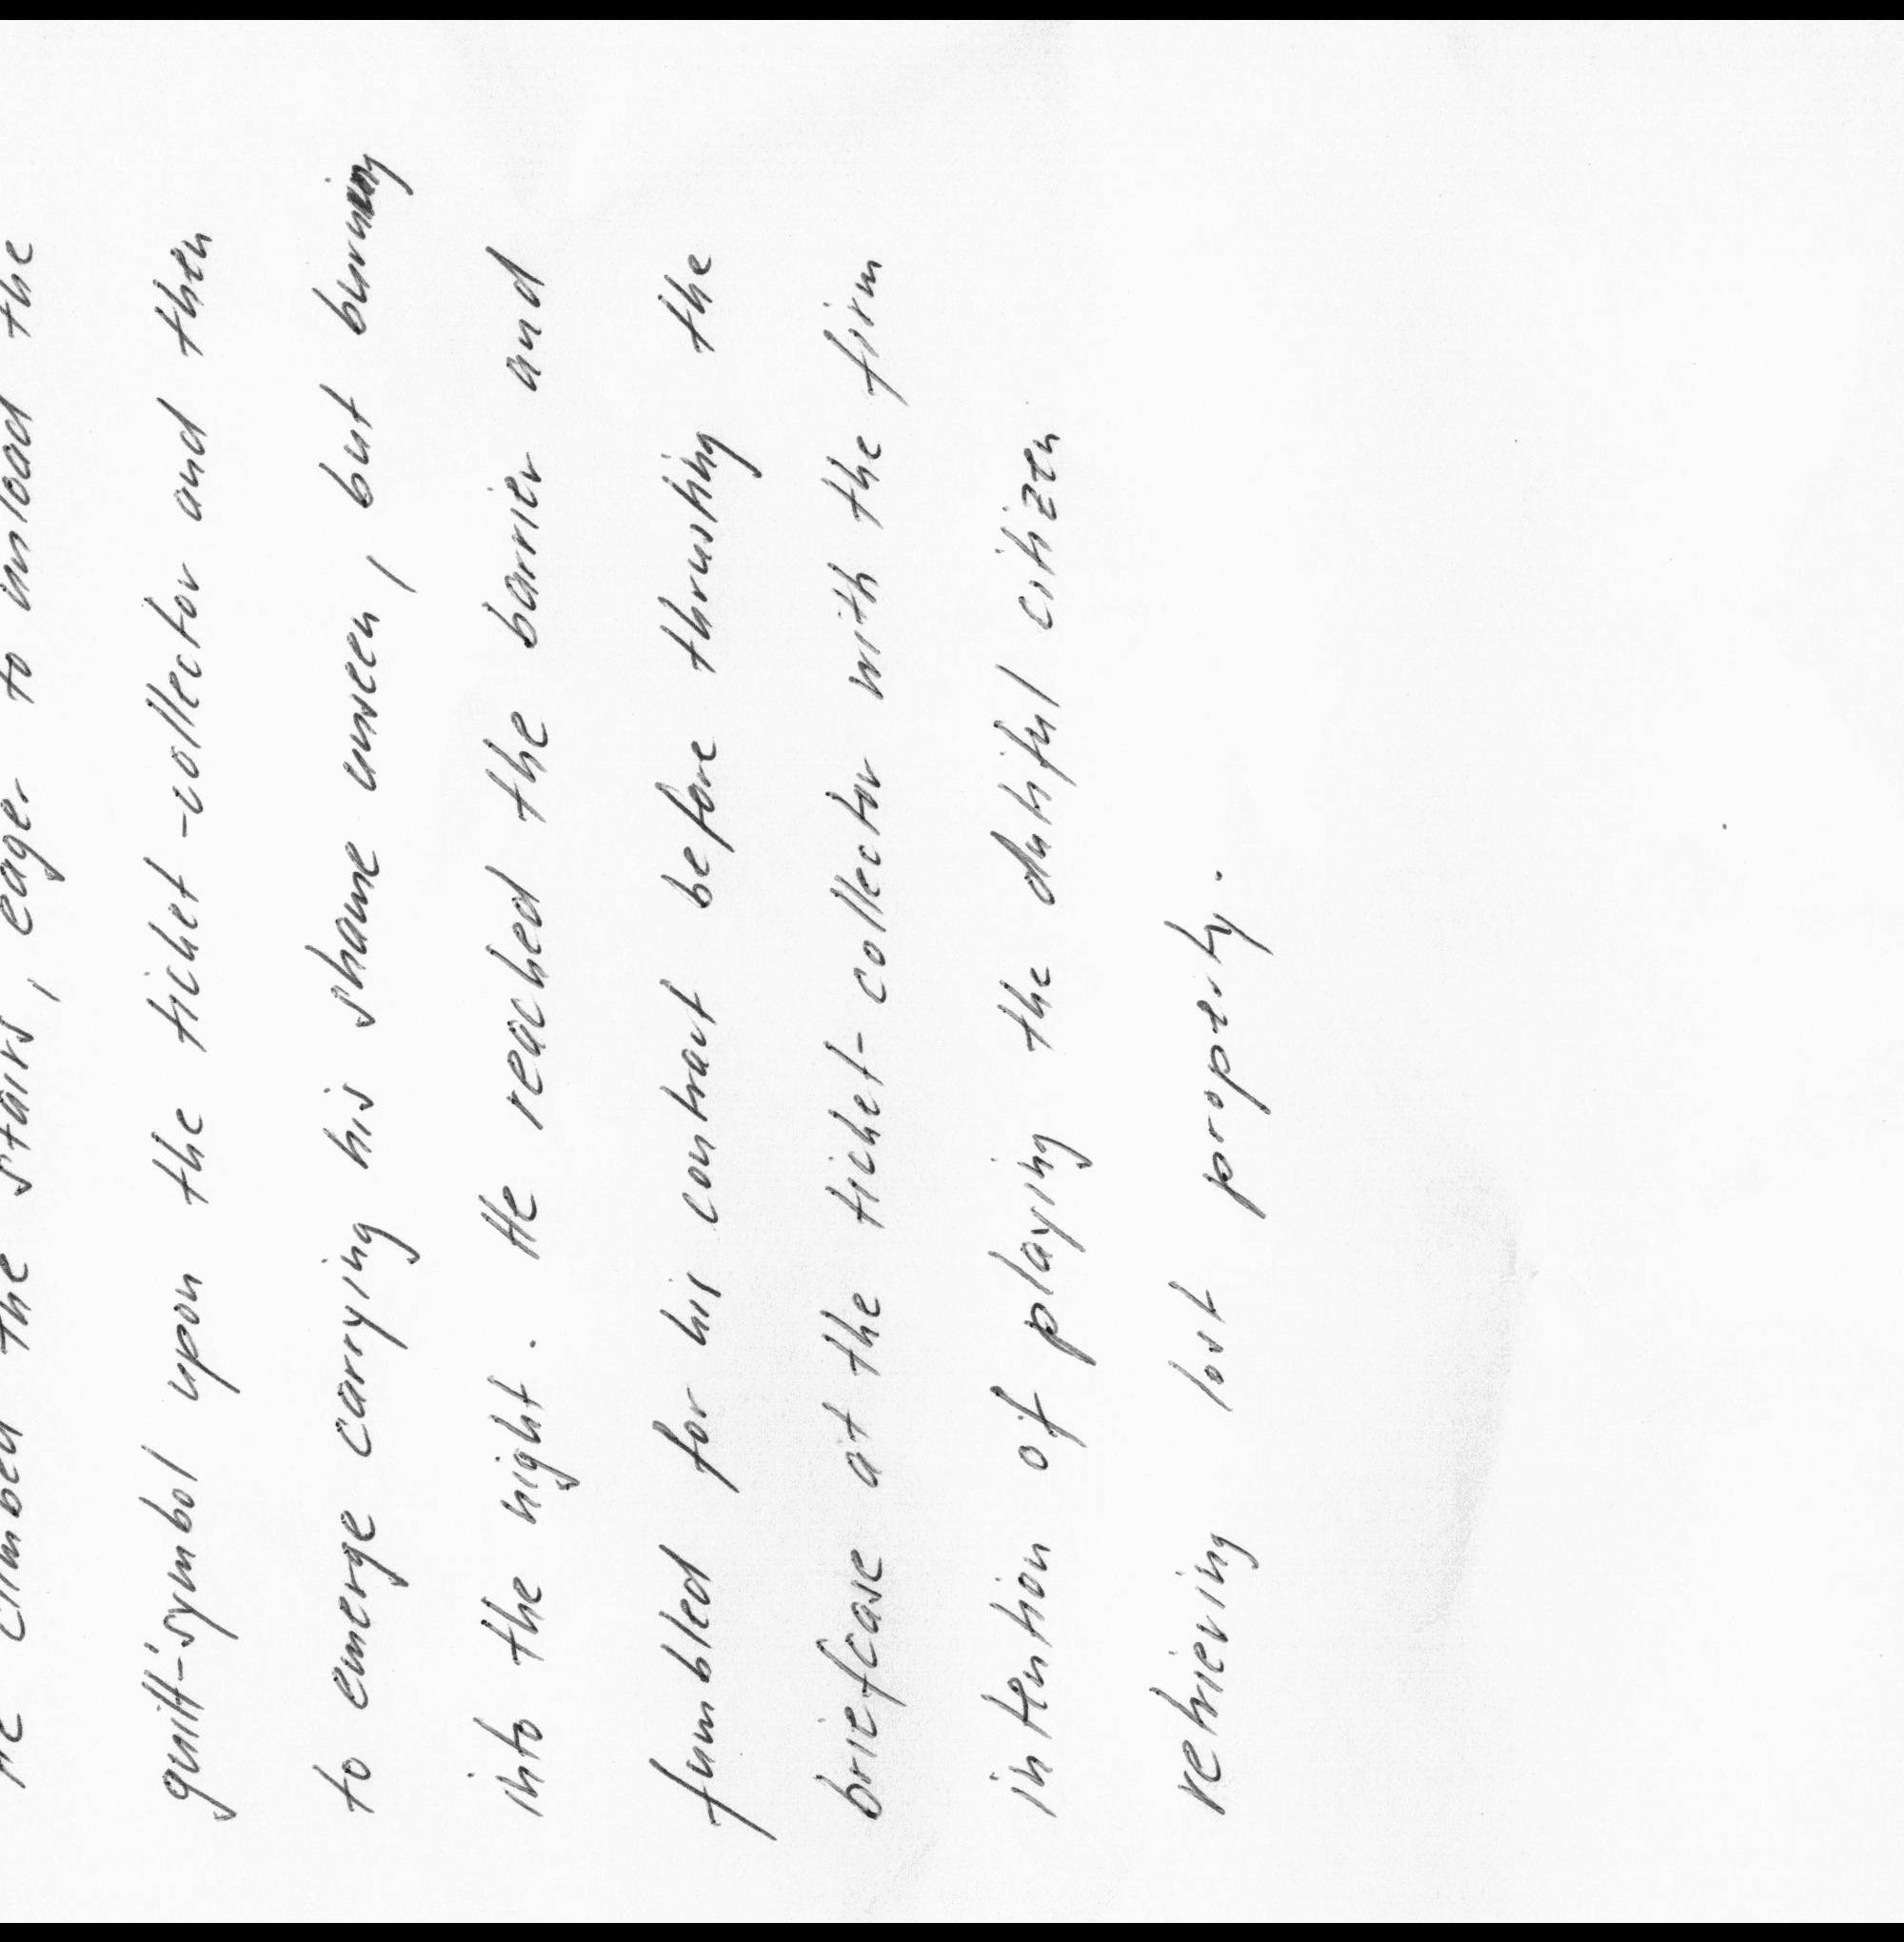 He climbed the stairs, eager to unload the
guilt-symbol upon the ticket-collector and then
to emerge carrying his shame unseen, but burning
into the night. He reached the barrier and
fumbled for his contract before thrusting the
briefcase at the ticket-collector with the firm
intention of playing the dutiful citizen
retrieving lost property.